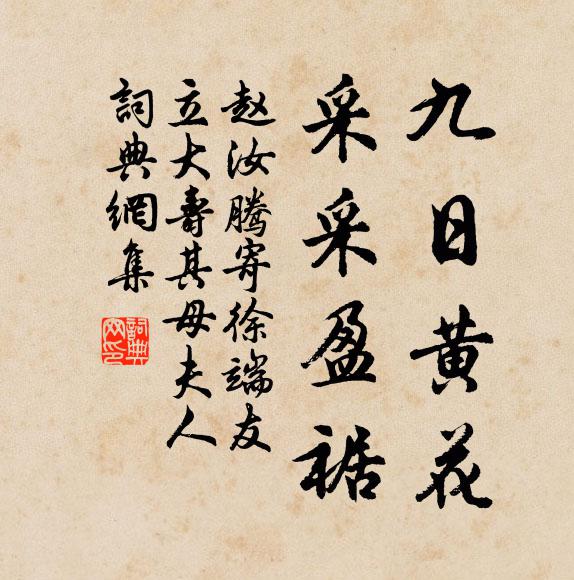 九日黄花
采采盈裾
赵汝腾寄徐端友
立大壽其母夫人
詞典網集
詞典
网印